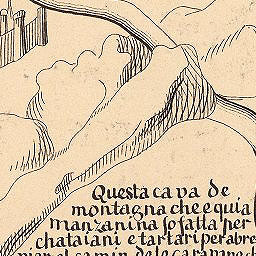 Questa ca va de
montagna che e quia
manzanina so fatta per
chataiani e tartari per abre